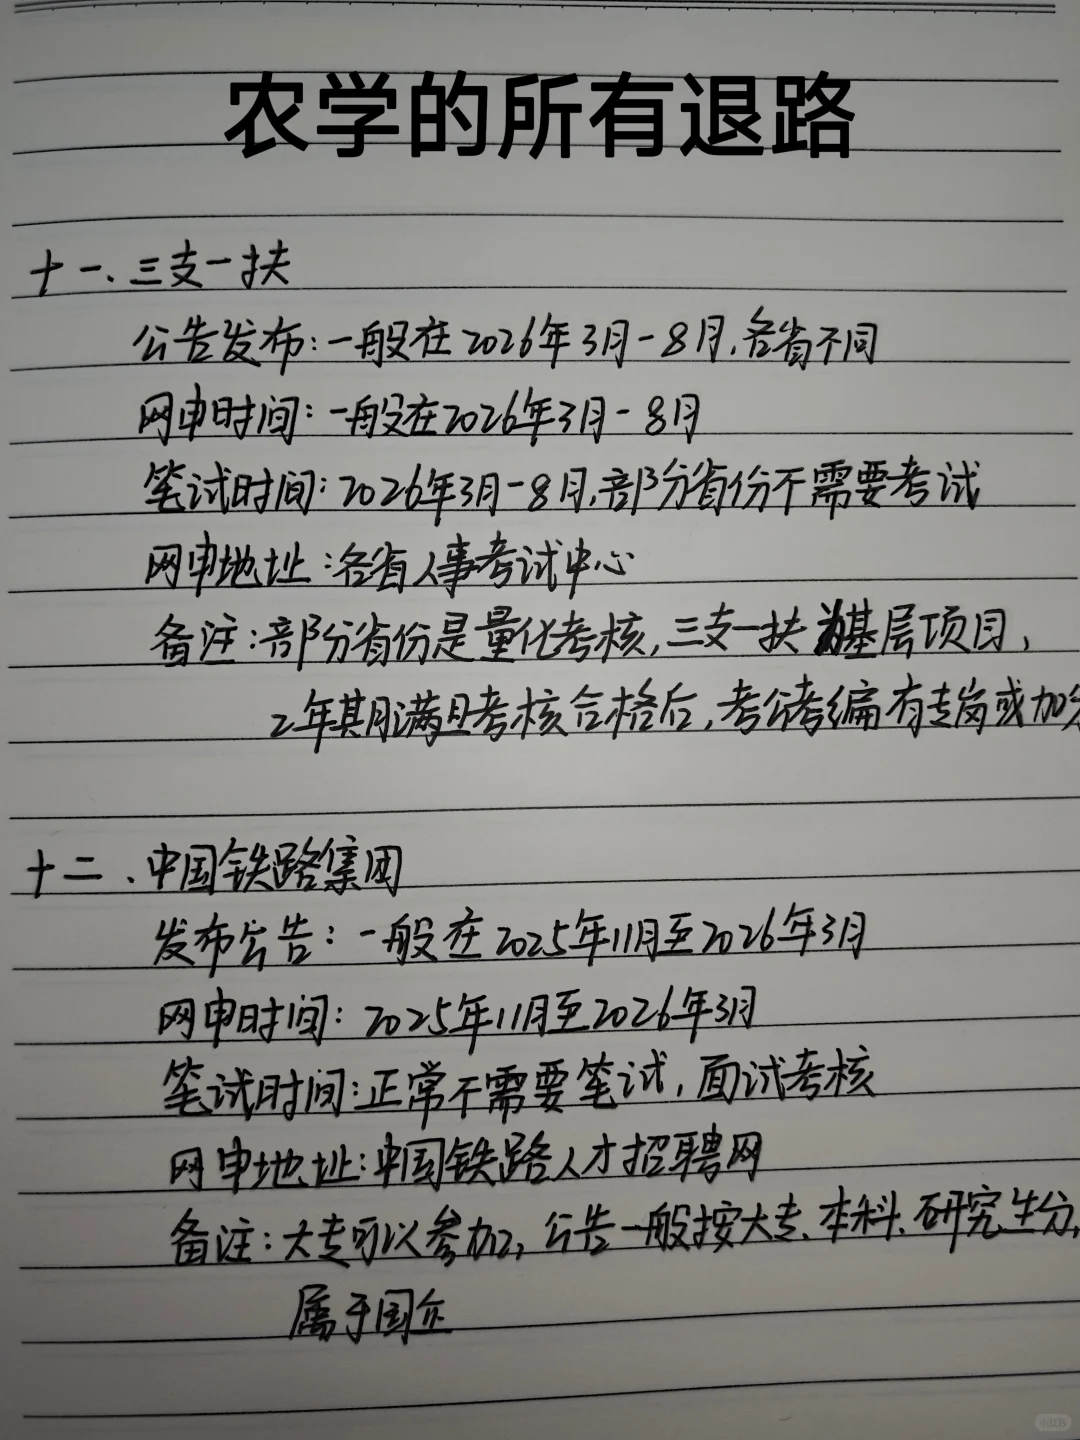 农学的所有退路
十一、三支一扶
公告发布:一般在2026年3月-8月,各省不同
网申时间:一般在2026年3月-8月
笔试时间:2026年3月-8月,部分省份不需要考试
网申地址:各省人事考试中心
备注:部分省份是量化考核,三支一扶为基层项目,
2年期满且考核合格后,考公考编有专岗或加分
十二、中国铁路集团
发布公告:一般在2025年11月至2026年3月
网申时间:2025年11月至2026年3月
笔试时间:正常不需要笔试,面试考核
网申地址:中国铁路人才招聘网
备注:大专可以参加,公告一般按大专、本科、研究生分,
属于国企
小红书